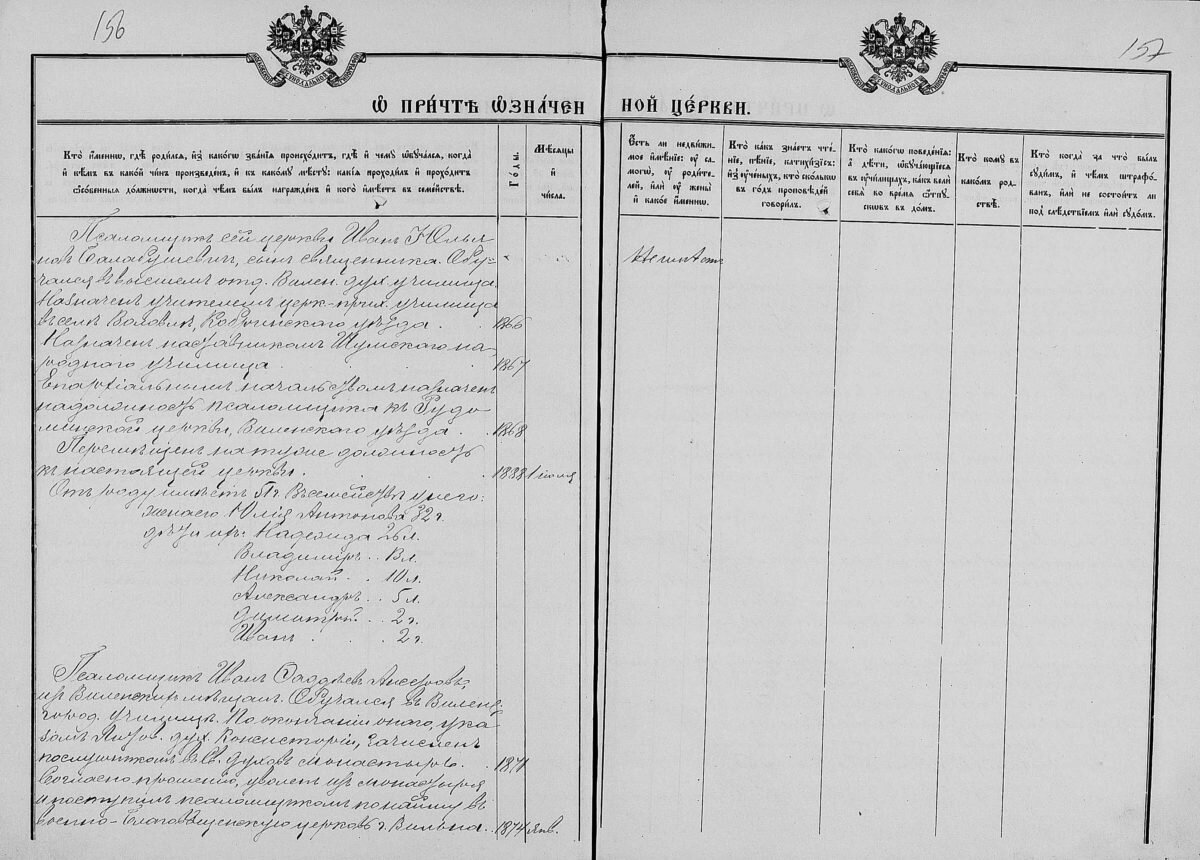 156
157
Ѽ ПРИ́ЧТѢ Ѽ҆ЗНА́ЧЕННОЙ ЦЕ́РКВИ.
Кто̀ и҆́менно, гдѣ̀ роди́лся, и҆з̾ како́гѡ зва́нїѧ происхо́дитъ, гдѣ̀ и҆ чемꙋ̀ ѡ҆бꙋча́лся, когда̀
и҆ кѣ́мъ въ како́й чи́нъ произведе́нъ, и҆ къ како́мꙋ мѣ́стꙋ: какі̑ѧ проходи́лъ и҆ прохо́дитъ
ѡ҆со́бенныѧ до́лжности, когда̀ чѣ́мъ бы́лъ награжде́нъ и҆ кого̀ и҆мѣ́етъ въ семе́йствѣ.
Го́ды.
Мѣ́сяцы
и҆
чи́сла.
Е҆́сть ли недви́жи-
мое и҆мѣ́нїе: ᲂу҆ са-
могѡ̀, ᲂу҆ роди́те-
лей, и҆лѝ ᲂу҆ жены̀
и҆ како́е и҆́менно.
Кто̀ ка́къ зна́етъ чте́-
нїе, пѣ́нїе, катихи́зїсъ:
и҆з̾ ᲂу҆че́ныхъ, кто̀ ско́лькѡ
въ го́дъ про́повѣдей
говори́лъ.
Кто̀ како́гѡ поведе́нїѧ:
а҆ дѣ́ти, ѡ҆бꙋча́ющїесѧ
въ ᲂу҆чи́лищахъ, ка́къ велѝ
себѐ во вре́мѧ ѿпꙋ-
скѡ́въ въ до́мъ.
Кто̀ комꙋ̀ въ
како́мъ род-
ствѣ̀.
Кто̀ когда̀ за что̀ бы́лъ
сꙋди́мъ, и҆ чѣ́мъ штрафо́-
ванъ, и҆лѝ не состои́тъ ли
под̾ слѣ́дствїемъ и҆лѝ сꙋдо́мъ.
Псаломщикъ сей церкви Иванъ Юлья-
новъ Балабушевичъ, сынъ священника. Обу-
чался въ высшемъ отд. Вилен. дух. училища.
Назначенъ учителемъ церк-прих. училища
въ селѣ Воловлѣ, Кобринскаго уѣзда . . 1866
Назначенъ наставникомъ Шумскаго на-
роднаго училища . . . 1867
Епархіальнымъ начальствомъ назначенъ
на должность псаломщика къ Рудо-
минской церкви, Виленскаго уѣзда . . 1868
Перемѣщенъ на туже должность
къ настоящей церкви . . 1888 1 іюля
Отъ роду имѣетъ 51 г. Въ семействѣ у него:
жена его Юлія Антонова 32 г.
дѣти ихъ: Надежда 26 л.
Владиміръ . . 13 л.
Николай . . 10 л.
Александръ . . 5 л.
Димитрій . . 2 г.
Иванъ . . 2 г.
Неимѣетъ
Псаломщикъ Иванъ Ѳаддѣевъ
изъ Виленскихъ мѣщанъ. Обучался въ Виленс.
город. училищѣ. По окончаніи онаго, ука-
зомъ Литов. дух. Консисторіи, зачисленъ
послушникомъ въ Св. Духовъ монастырь . . 1871
Согласно прошенію, уволенъ изъ монастыря
и поступилъ псаломщикомъ по найму въ
военно-Благовѣщенскую церковь г. Вильна . . 1874 янв.